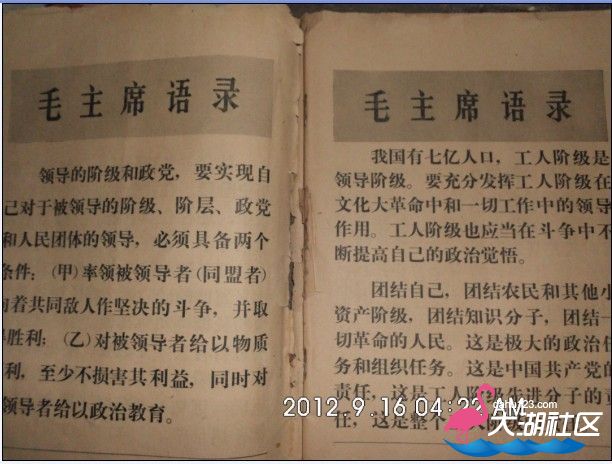 毛主席语录
领导的阶级和政党，要实现自
己对于被领导的阶级、阶层、政党
和人民团体的领导，必须具备两个
条件：(甲)率领被领导者(同盟者)
向着共同敌人作坚决的斗争，并取
得胜利；(乙)对被领导者给以物质
利，至少不损害其利益，同时对
领导者给以政治教育。
毛主席语录
我国有七亿人口，工人阶级是
领导阶级。要充分发挥工人阶级在
文化大革命中和一切工作中的领导
作用。工人阶级也应当在斗争中不
断提高自己的政治觉悟。
团结自己，团结农民和其他小
资产阶级，团结知识分子，团结一
切革命的人民。这是极大的政治任
务和组织任务。这是中国共产党的
责任，这是工人阶级先进分子的责
任，这是整个工人阶级
2012.9.16 04:22 AM
dahu123.com
大湖社区